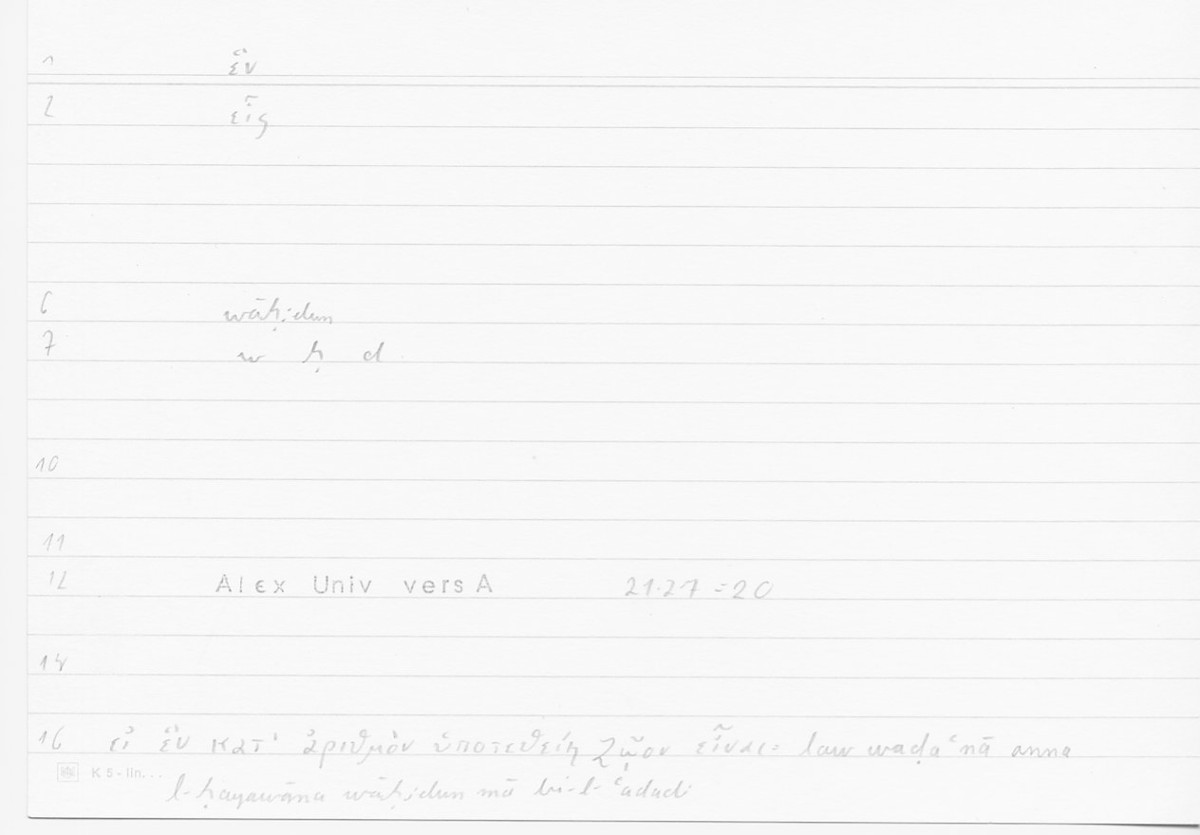 1 ἓν
2 εἷς
6 wāḥidun
7 w ḥ d
10
11
12 Alex Univ vers A 21.27 = 20
14
16 εἰ ἓν κατ' ἀριθμὸν ὑποτεθείη ζῷον εἶναι = law waḍaʿnā anna
K 5 - lin...
l-ḥayawāna wāḥidun mā bi-l-ʿadadi